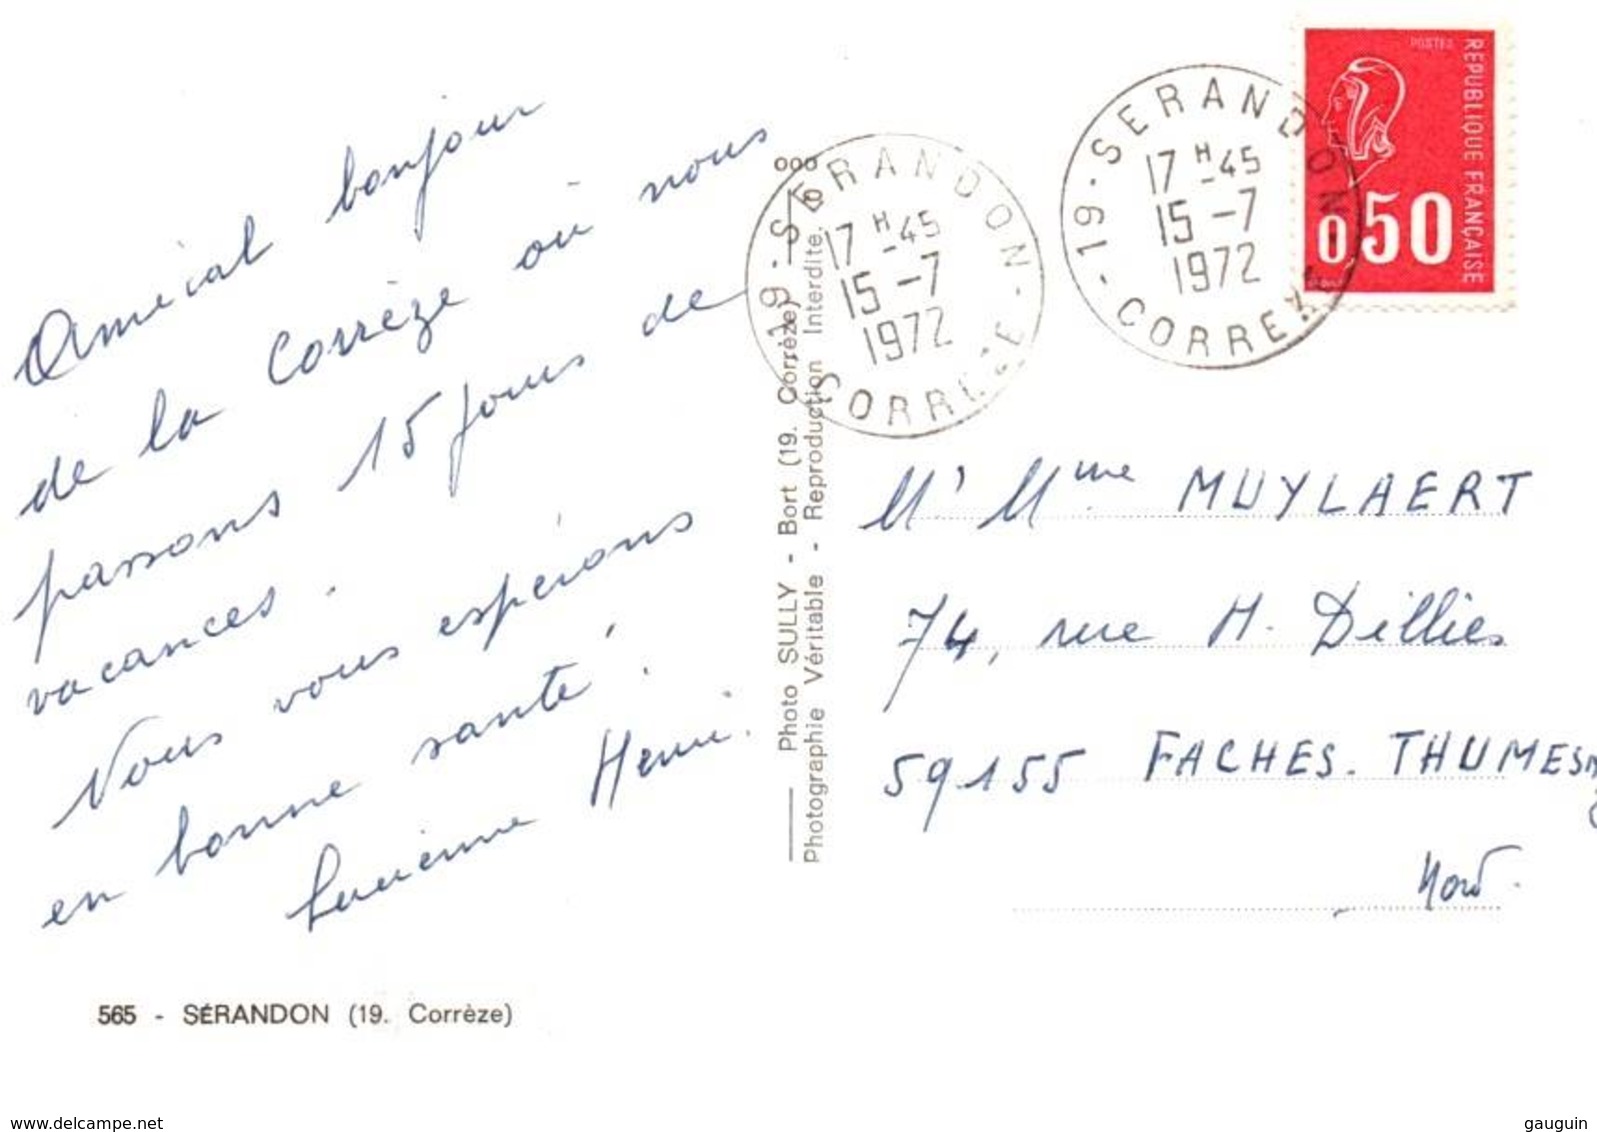 Amical bonjour
de la Corrèze où nous
passons 15 jours de
vacances.
Nous vous espérons
en bonne santé !
Lucienne Henri.
565 - SÉRANDON (19. Corrèze)
Photo SULLY - Bort (19. Corrèze)
Photographie Véritable - Reproduction Interdite.
19 - SERANDON - CORREZE
17 H -45
15 -7
1972
19 - SERANDON - CORREZE
17 H -45
15 -7
1972
POSTES
REPUBLIQUE FRANÇAISE
0,50
Mr Mme MUYLAERT
74, rue H. Dillies
59155 FACHES. THUMESN
Nord.
www.delcampe.net
gauguin